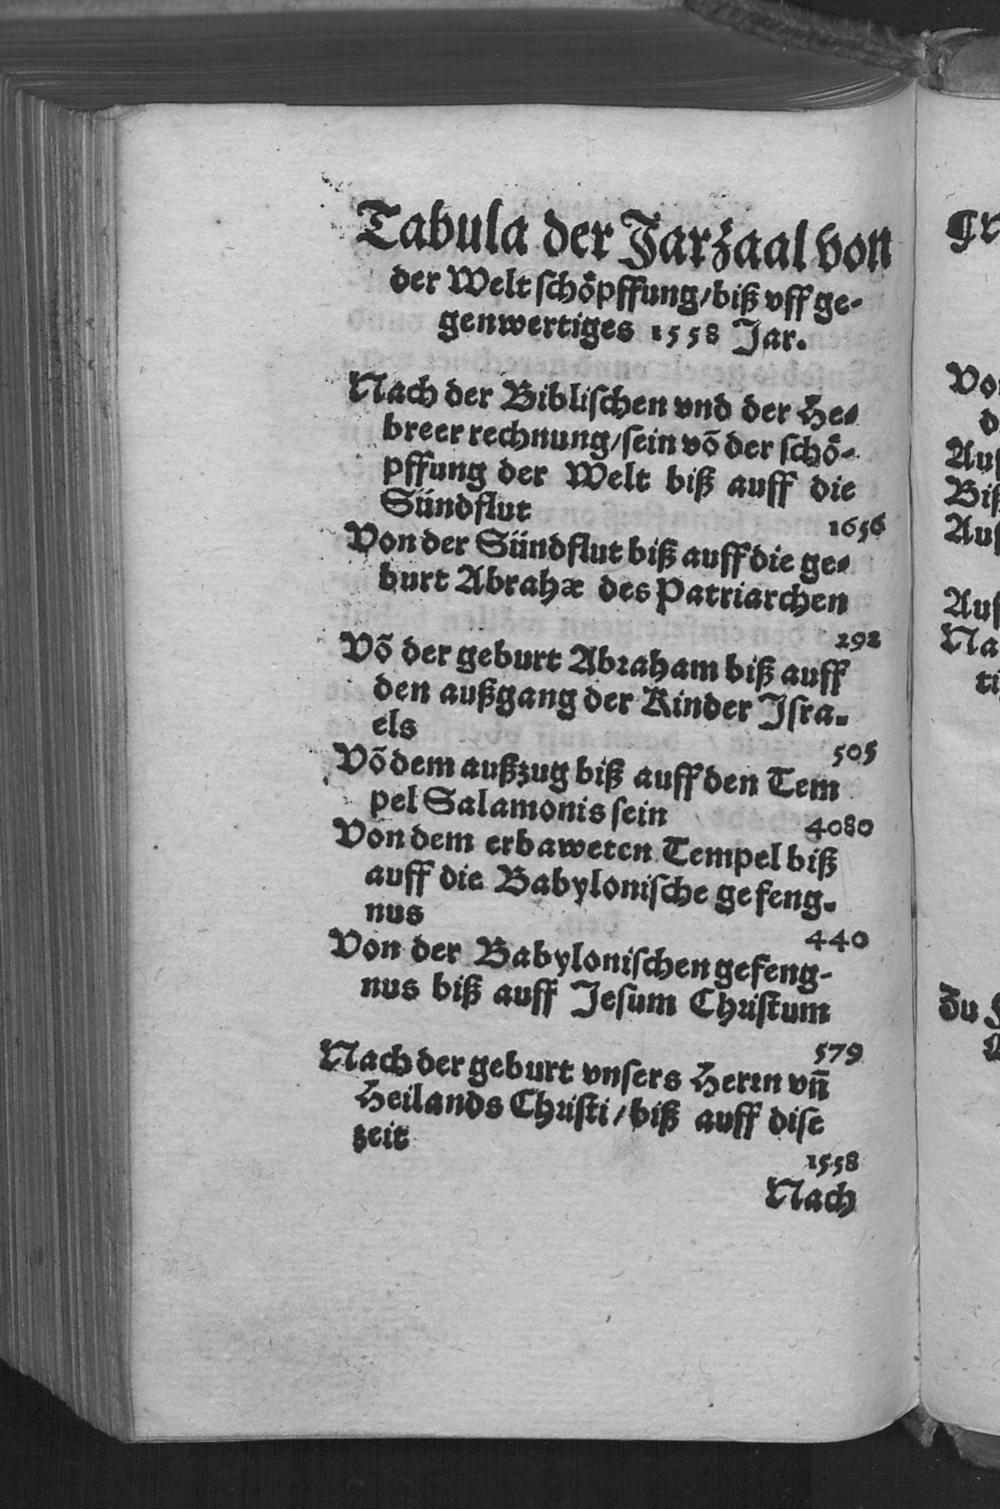 Tabula der Jarzaal von
der Welt schöpffung/biß vff ge-
genwertiges 1558 Jar.
Nach der Biblischen vnd der He-
breer rechnung/sein võ der schö-
pffung der Welt biß auff die
Sündflut 1656
Von der Sündflut biß auff die ge-
burt Abrahæ des Patriarchen
292
Võ der geburt Abraham biß auff
den außgang der Kinder Isra-
els 505
Võ dem außzug biß auff den Tem
pel Salamonis sein 4080
Von dem erbaweten Tempel biß
auff die Babylonische gefeng-
nus 440
Von der Babylonischen gefeng-
nus biß auff Jesum Christum
579
Nach der geburt vnsers Herrn vñ
Heilands Christi/biß auff dise
zeit 1558
Nach
Von
d
Aus
Biß
Aus
Aus
Na
ti
Zu